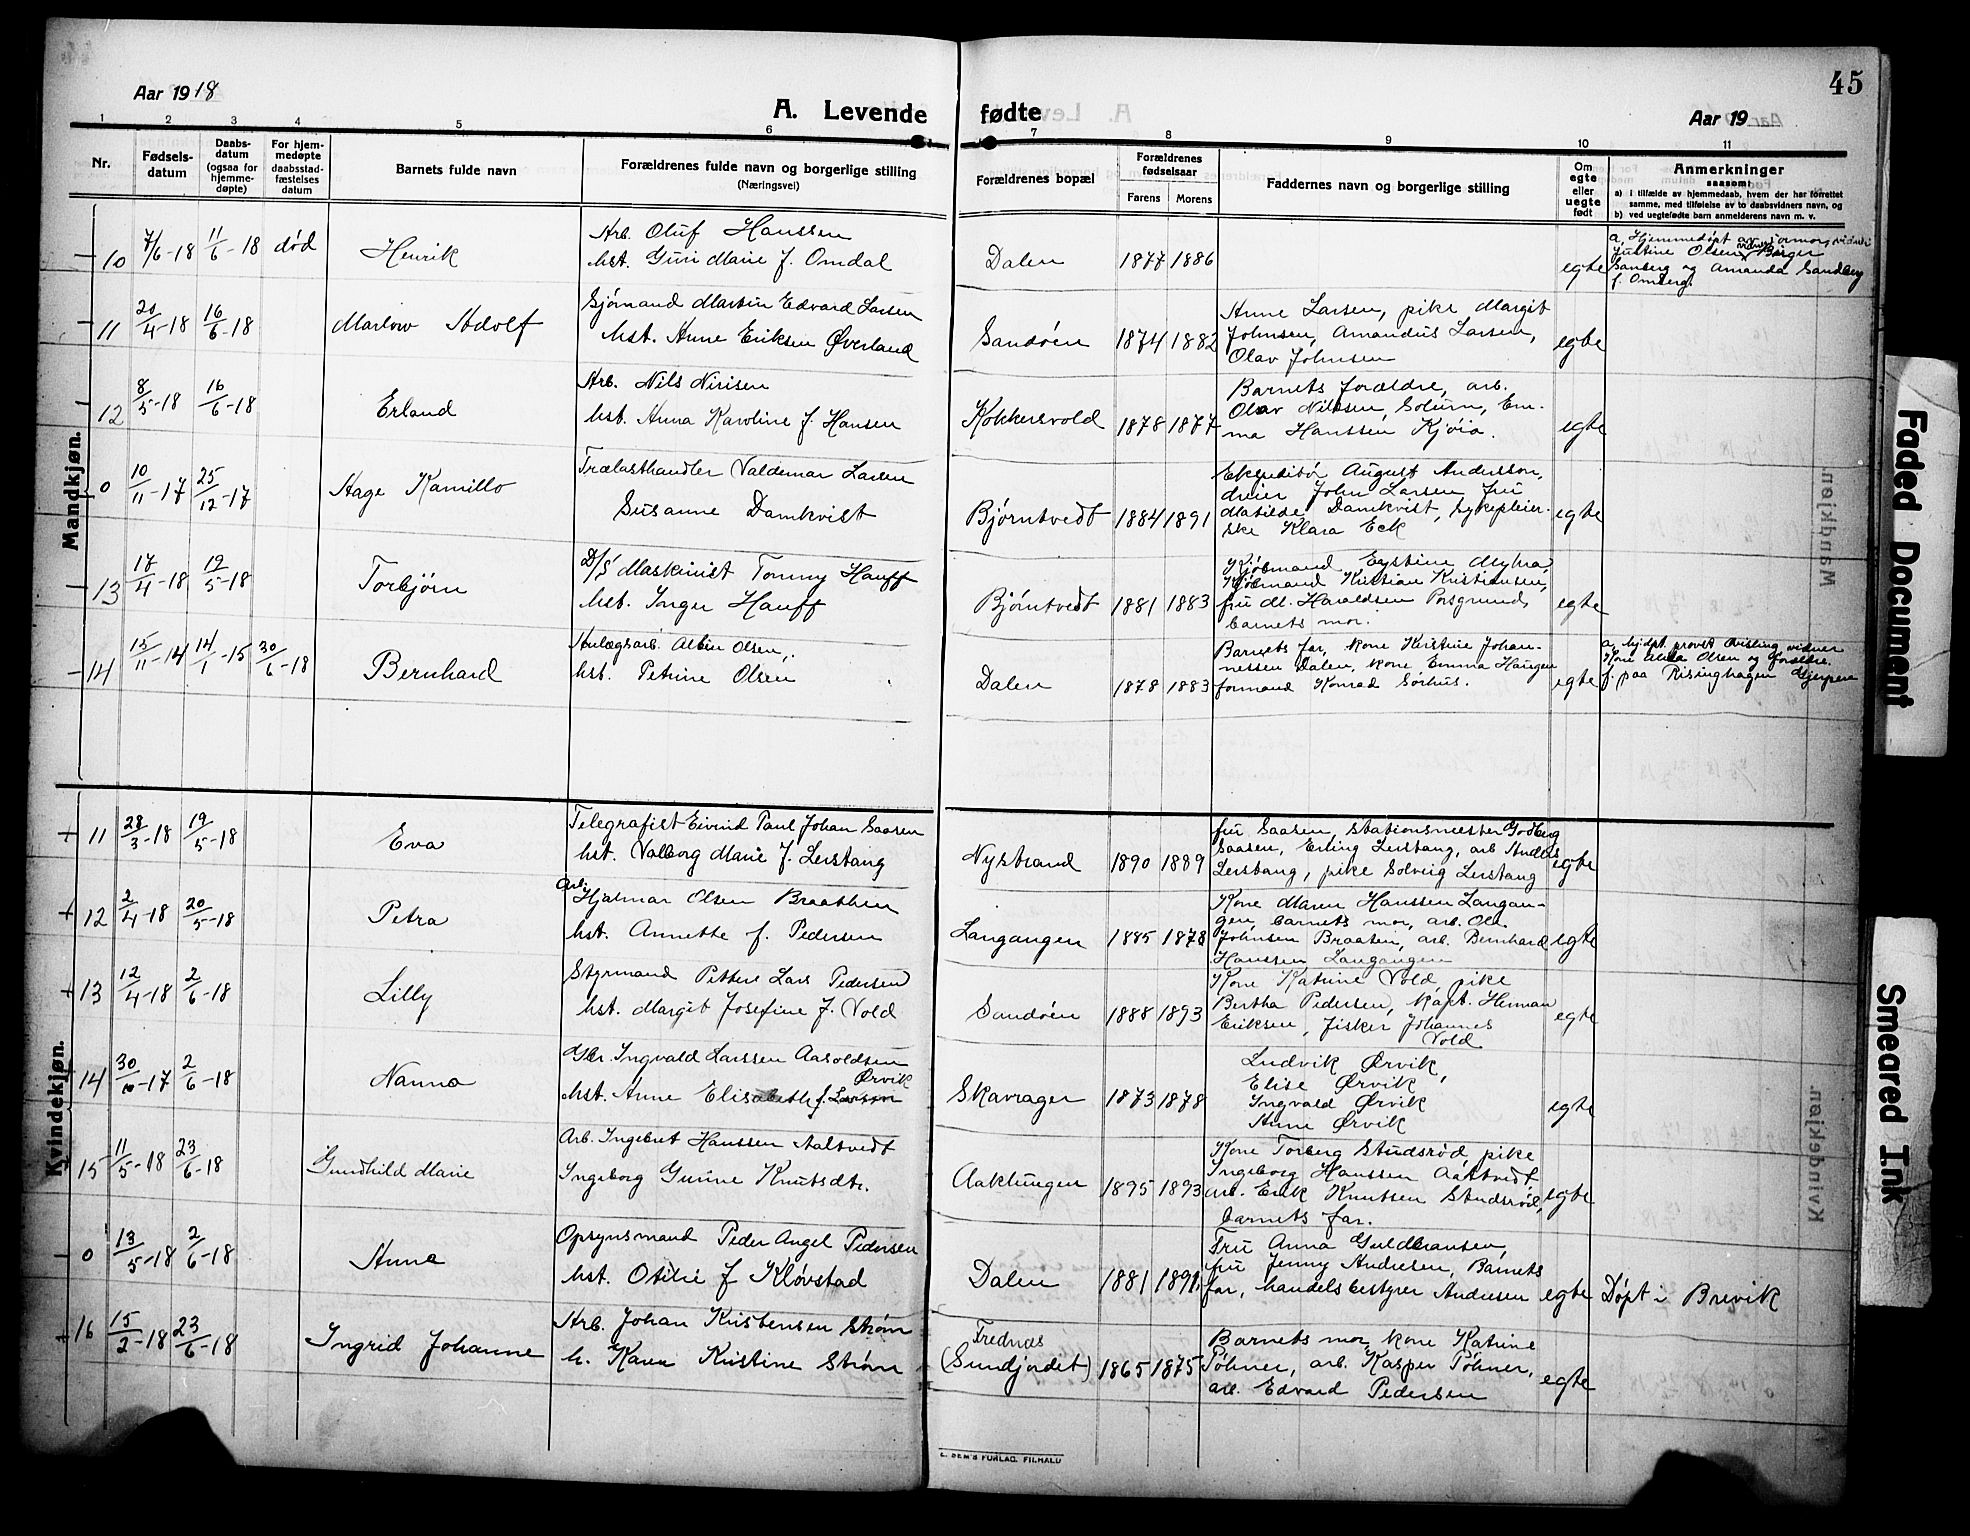 45
Aar 1918
A. Levende fødte
Aar 19
1 2 3 4 5 6 7 8 9 10 11
Nr.
Fødsels-
datum
Daabs-
datum
(ogsaa for
hjemme-
døpte)
For hjem-
medøpte
daabsstad-
fæstelses
datum
Barnets fulde navn
Forældrenes fulde navn og borgerlige stilling
(Næringsvei)
Forældrenes bopæl
Forældrenes
fødselsaar
Farens Morens
Faddernes navn og borgerlige stilling
Om
egte
eller
uegte
født
Anmerkninger
saasom:
a) i tilfælde av hjemmedaab, hvem der har forrettet
samme, med tilføielse av to daabsvidners navn, og
b) ved uegtefødte barn anmelderens navn m. v.
Mandkjøn.
10 7/6-18 11/6-18 død Henrik
Arb. Oluf Hanssen
hst. Guri Marie f. Omdal
Dalen 1877 1886
egte
a, Hjemmedøpt av jormor, vidner
Justine Olsen, Birger
Sanberg og Amanda Sandberg
f. Omberg.
11 20/4-18 16/6-18 Marlow Adolf
Sjømand Martin Edvard Larsen
hst. Anne Eriksen Øverland
Sandøen 1874 1882
Anne Larsen, pike Margit
Johnsen, Amandus Larsen,
Olav Johnsen
egte
12 8/5-18 16/6-18 Erland
Arb. Nils Nirisen
hst. Anna Karoline f. Hansen
Kokkersvold 1878 1877
Barnets forældre, arb.
Olav Nilssen, Solum, Em-
ma Hanssen Kjøia.
egte
0 10/11-17 25/12-17 Aage Kamillo
Trælasthandler Valdemar Larsen
Susanne Damkvist
Bjørntvedt 1884 1891
Ekspeditør August Andersson,
dreier John Larsen, fru
Matilde Damkvist, sykepleier-
ske Klara Eck
egte
13 17/4-18 19/5-18 Torbjørn
D/S Maskinist Tommy Hauff
hst. Inger Hauff
Bjørntvedt 1881 1883
Kjøbmand Eystine Myhra,
Kjøbmand Kristian Kristiansen,
fru M. Haraldsen Porsgrund,
barnets mor.
egte
14 15/11-14 14/1-15 30/6-18 Bernhard
Anlægsarb. Albin Olsen,
hst. Petrine Olsen
Dalen 1878 1883
Barnets far, kone Kristine Johan-
nessen Dalen, kone Emma Haugen
formand Konrad Sørhus.
egte
a, hjdpt. provst Qvisling vidner
Kone Olsen og foreldre.
f. paa Risinghagen Gjerpen
Kvindekjøn.
11 28/3-18 19/5-18 Eva
Telegrafist Eivind Paul Johan Saasen
hst. Valborg Marie f. Lerstang
Nystrand 1890 1889
fru Saasen, stationsmester Godberg
Saasen, Erling Lerstang, arb Anders
Lerstang, pike Solveig Lerstang
egte
12 2/4-18 20/5-18 Petra
Arb. Hjalmar Olsen Braathen
hst. Annette f. Pedersen
Langangen 1885 1878
Kone Maren Hanssen Langan-
gen, barnets mor, arb. Ole
Johnsen Braaten, arb. Bernhard
Hanssen Langangen
egte
13 12/4-18 2/6-18 Lilly
Styrmand Petter Lars Pedersen
hst. Margit Josefine f. Vold
Sandøen 1888 1893
Kone Katrine Vold, pike
Bertha Pedersen, kapt. Herman
Eriksen, fisker Johannes
Vold
egte
14 30/10-17 2/6-18 Nanna
Gbr. Ingvald Larssen Aasoldsen
Ørvik
hst. Anne Elisabeth f. Larsen
Skavrager 1873 1878
Ludvik Ørvik,
Elise Ørvik
Ingvald Ørvik
Anne Ørvik
egte
15 11/5-18 23/6-18 Gundhild Marie
Arb. Ingebret Hanssen Aaltvedt
Ingeborg Gurine Knutsdtr.
Aaklungen 1895 1893
Kone Torberg Studsrød, pike
Ingeborg Hanssen Aaltvedt,
arb. Erik Knutsen Studsrød,
barnets far.
egte
0 13/5-18 2/6-18 Anna
Opsynsmand Peder Angel Pedersen
hst. Otilie f Kløvstad
Dalen 1881 1891
Fru Anna Guldbransen,
fru Jenny Andresen, Barnets
far, handelsbestyrer Andresen
egte
Døpt i Brevik
16 15/2-18 23/6-18 Ingrid Johanne
Arb. Johan Kristensen Strøm
h. Karen Kristine Strøm
Frednes
(Sundjordet) 1865 1875
Barnets mor, kone Katrine
Pøhner, arb. Kasper Pøhner,
arb. Edvard Pedersen
egte
Faded Document
Smeared Ink